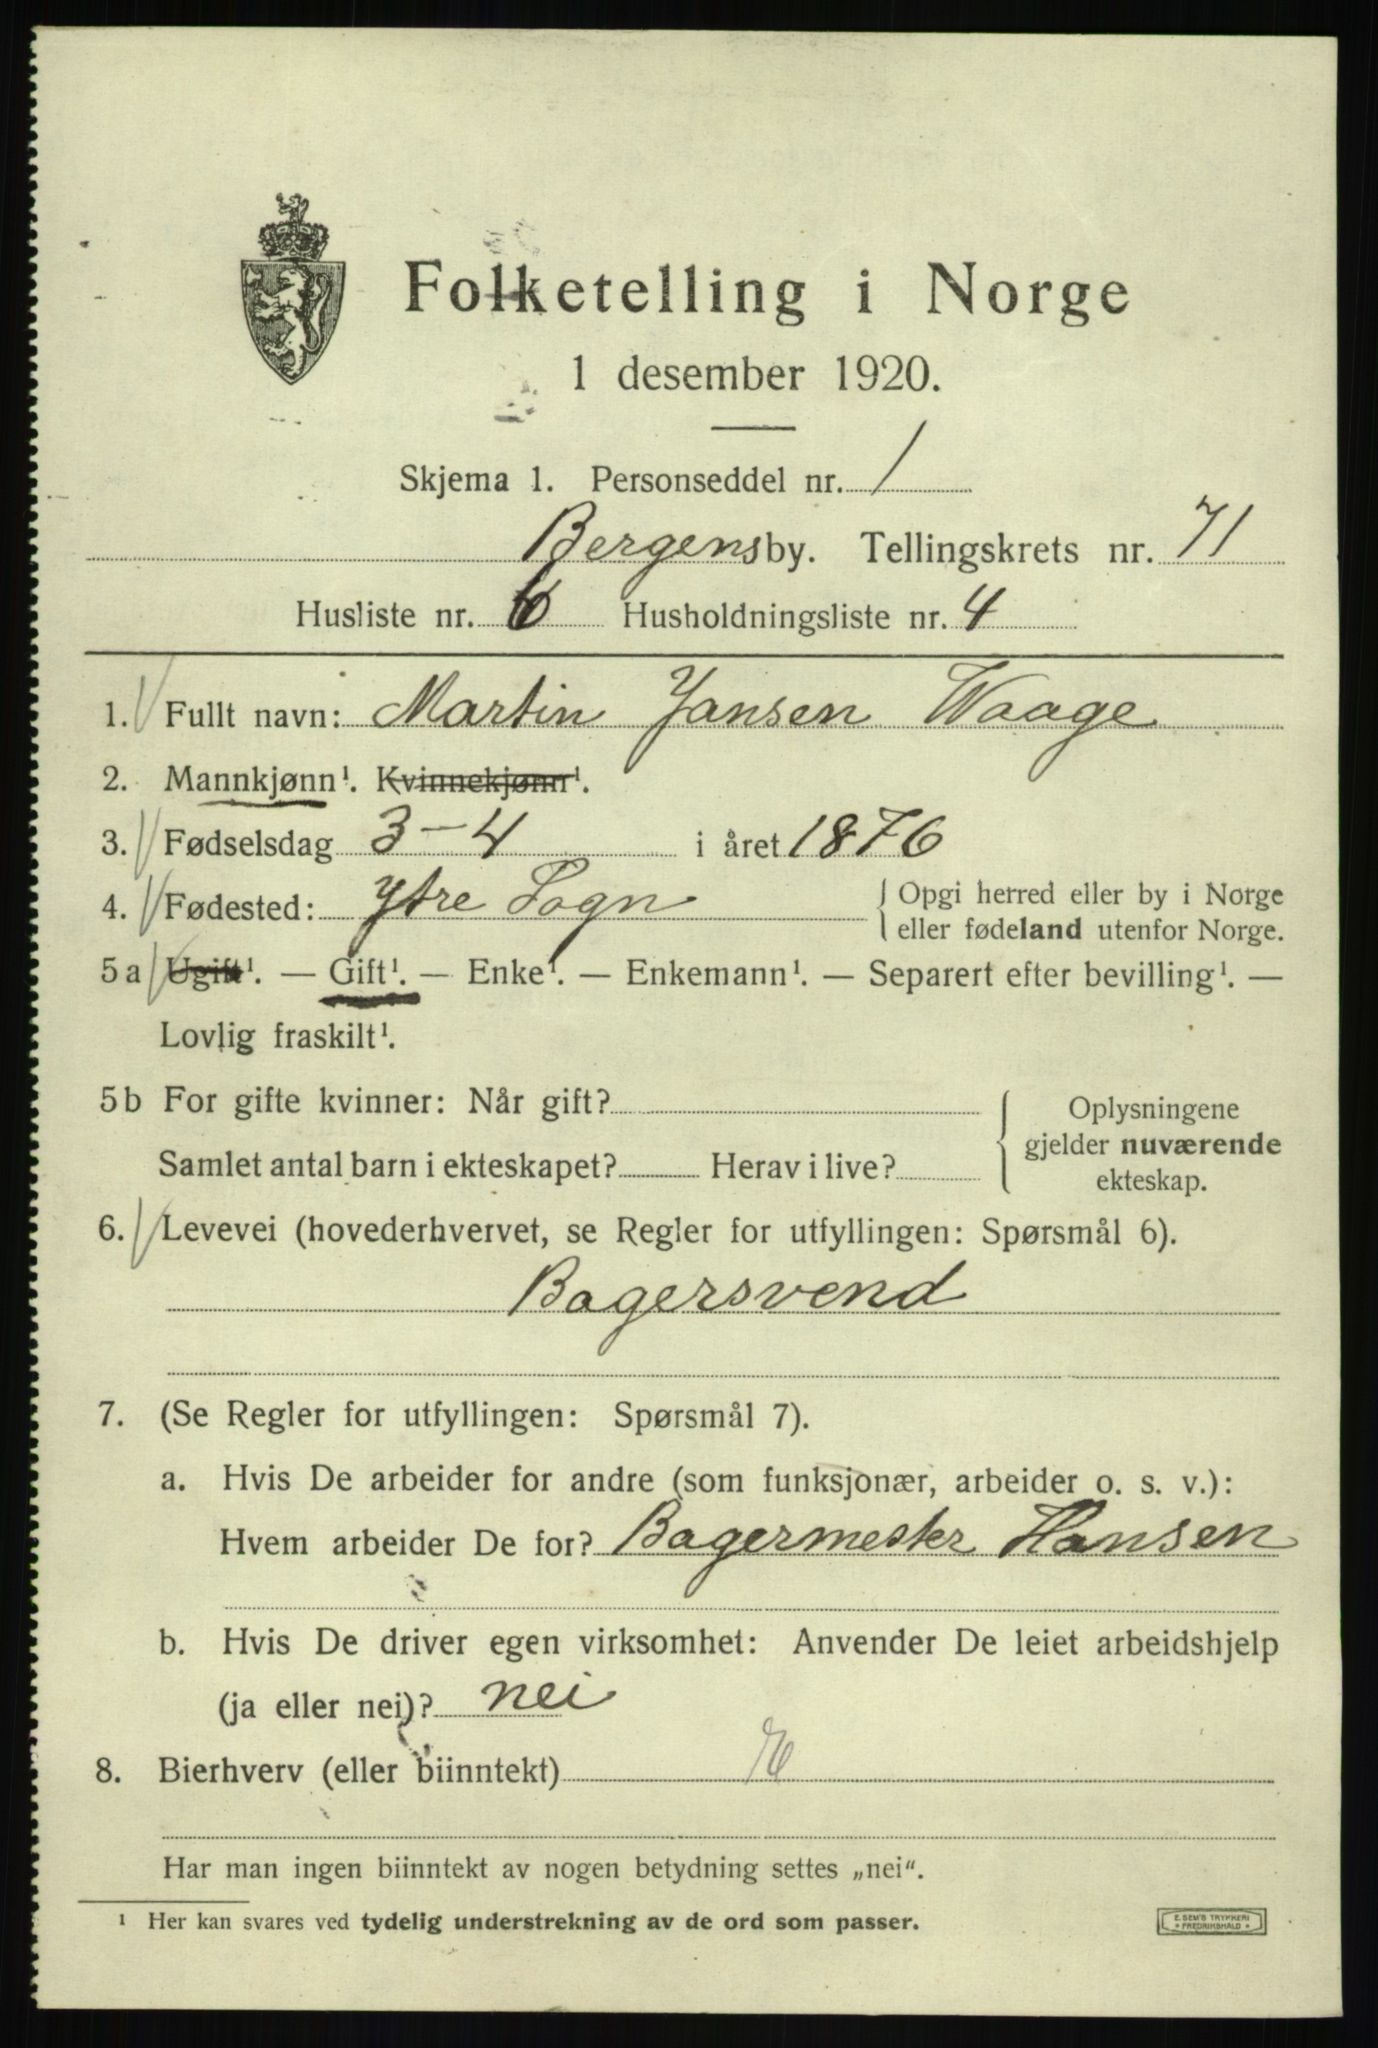 Folketelling i Norge
1 desember 1920.
Skjema 1. Personseddel nr. 1
Bergens by. Tellingskrets nr. 71
Husliste nr. 6 Husholdningsliste nr. 4
1. Fullt navn: Martin Jansen Waage
2. Mannkjønn¹. Kvinnekjønn¹.
3. Fødselsdag 3-4 i året 1876
4. Fødested: Ytre Sogn { Opgi herred eller by i Norge
eller fødeland utenfor Norge.
5 a Ugift¹. — Gift¹. — Enke¹. — Enkemann¹. — Separert efter bevilling¹. —
Lovlig fraskilt¹.
5 b For gifte kvinner: Når gift? { Oplysningene
gjelder nuværende
Samlet antal barn i ekteskapet? Herav i live?
ekteskap.
6. Levevei (hovederhvervet, se Regler for utfyllingen: Spørsmål 6).
Bagersvend
7. (Se Regler for utfyllingen: Spørsmål 7).
a. Hvis De arbeider for andre (som funksjonær, arbeider o. s. v.):
Hvem arbeider De for? Bagermester Hansen
b. Hvis De driver egen virksomhet: Anvender De leiet arbeidshjelp
(ja eller nei)? nei
8. Bierhverv (eller biinntekt)
Har man ingen biinntekt av nogen betydning settes „nei“.
¹ Her kan svares ved tydelig understrekning av de ord som passer.
E. SEM'S TRYKKERI
FREDRIKSHALD